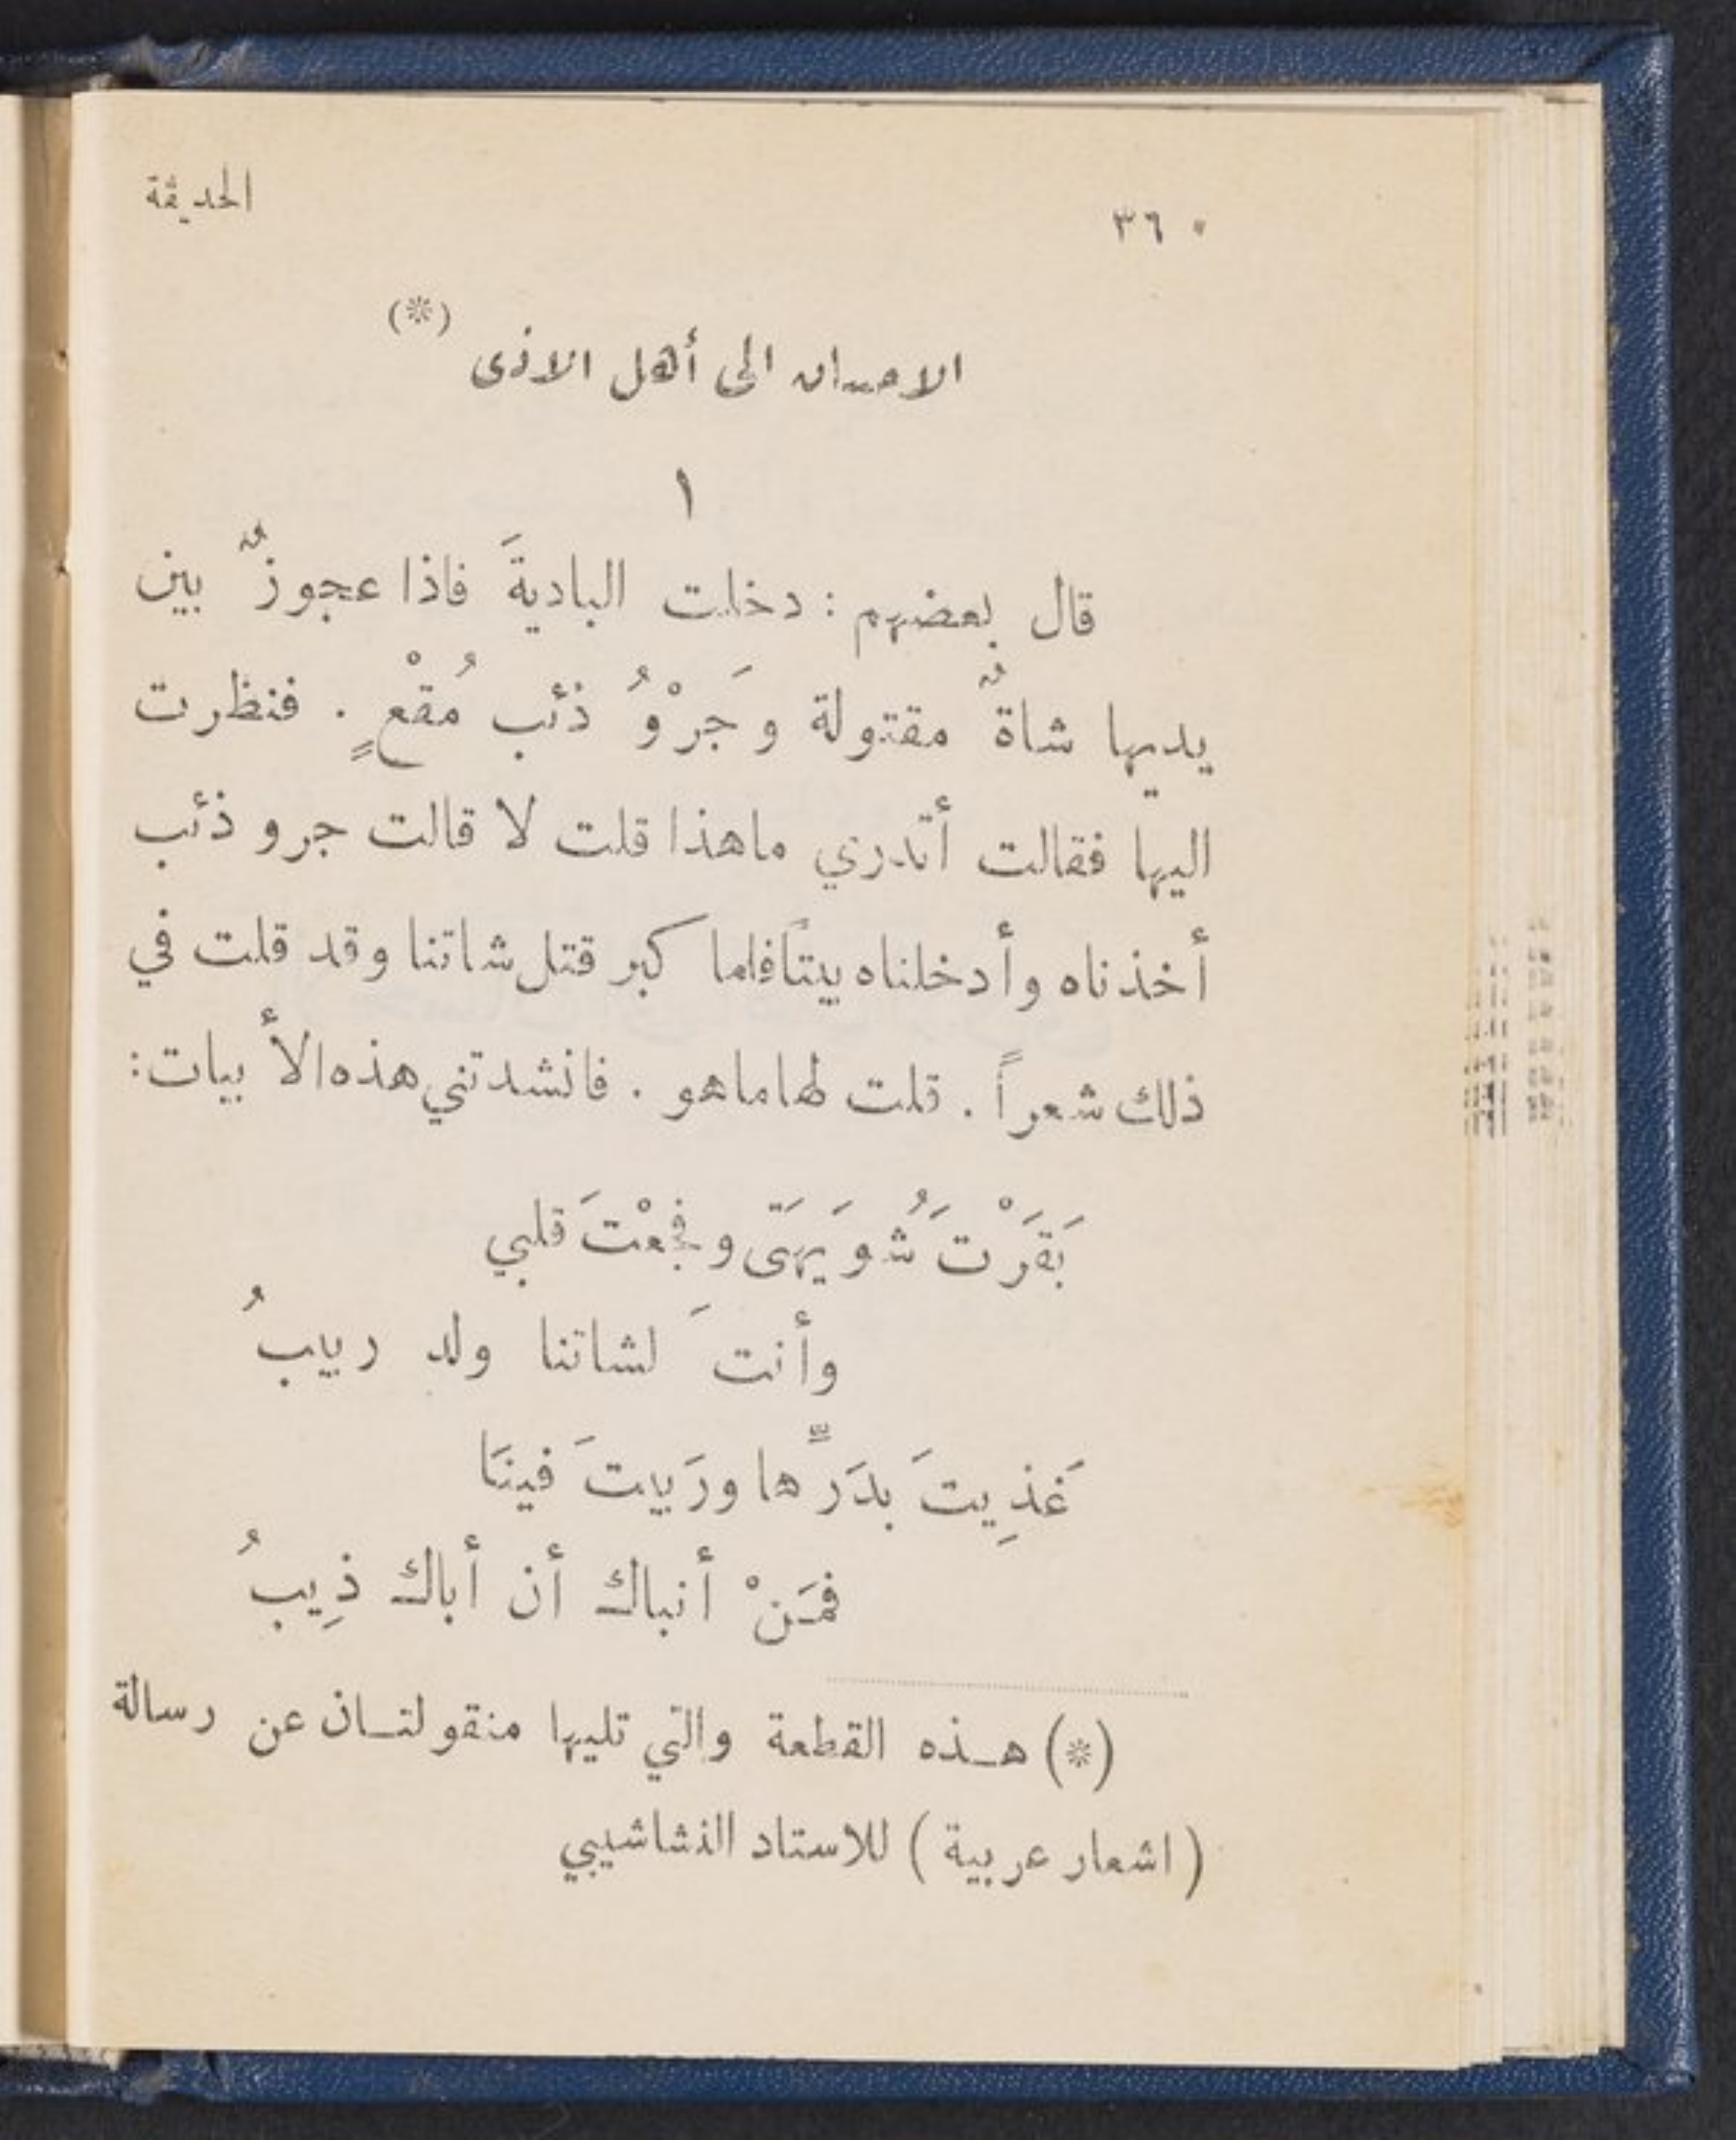 ٣٦ الحديقة
الاحسان الى أهل الاذى (*)
١
قال بعضهم : دخلت الباديةَ فاذا عجوزٌ بين
يديها شاةٌ مقتولة وَجَرْوُ ذئب مُقْعٍ . فنظرت
اليها فقالت أتدري ماهذا قلت لا قالت جرو ذئب
أخذناه وأدخلناه بيتاً فلما كبر قتل شاتنا وقد قلت في
ذلك شعراً . قلت لها ماهو . فانشدتني هذه الأبيات :
بَقَرْتَ شُوَيهَتَى وفجعْتَ قلبي
وأنتَ لشاتنا ولد ربيبُ
غَذِيتَ بدَرِّها ورَبيتَ فينَا
فمَنْ أنباك أن أباك ذِيبُ
(*) هـذه القطعة والتي تليها منقولتـان عن رسالة
( اشعار عربية ) للاستاد النشاشيبي